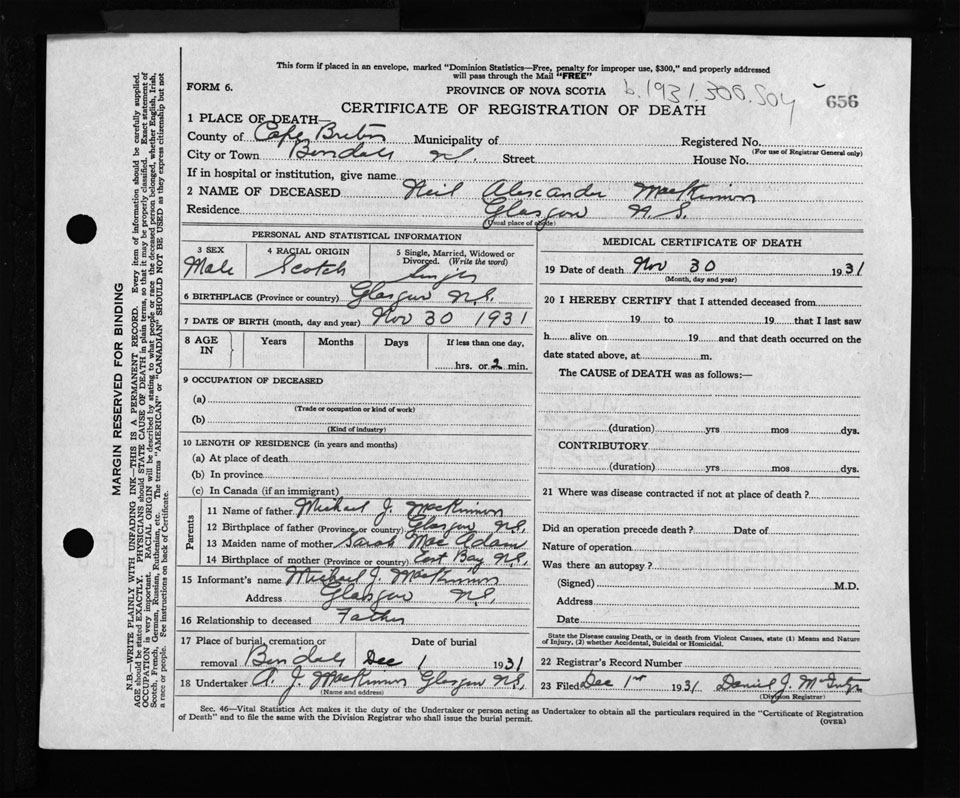 This form if placed in an envelope, marked "Dominion Statistics—Free, penalty for improper use, $300," and properly addressed
will pass through the Mail "FREE"
FORM 6.
PROVINCE OF NOVA SCOTIA
b.1931.306.504
656
CERTIFICATE OF REGISTRATION OF DEATH
1 PLACE OF DEATH—
County of Cape Breton Municipality of Registered No.
(For use of Registrar General only)
City or Town N.S. Street House No.
If in hospital or institution, give name
2 NAME OF DECEASED Neil Alexander MacKinnon
Residence Glasgow N.S.
(Usual place of abode)
PERSONAL AND STATISTICAL INFORMATION
3 SEX 4 RACIAL ORIGIN 5 Single, Married, Widowed or
Divorced. (Write the word)
Male Scotch Single
6 BIRTHPLACE (Province or country) Glasgow N.S.
7 DATE OF BIRTH (month, day and year) Nov 30 1931
8 AGE IN Years Months Days If less than one day,
hrs. or 2 min.
9 OCCUPATION OF DECEASED
(a)
(Trade or occupation or kind of work)
(b)
(Kind of industry)
10 LENGTH OF RESIDENCE (in years and months)
(a) At place of death
(b) In province
(c) In Canada (if an immigrant)
Parents
11 Name of father Michael J. MacKinnon
12 Birthplace of father (Province or country) Glasgow N.S.
13 Maiden name of mother Sarah MacAdam
14 Birthplace of mother (Province or country) East Bay N.S.
15 Informant's name Michael J. MacKinnon
Address Glasgow N.S.
16 Relationship to deceased Father
17 Place of burial, cremation or Date of burial
removal Dec 1 1931
18 Undertaker A. J. MacKinnon Glasgow N.S.
(Name and address)
MEDICAL CERTIFICATE OF DEATH
19 Date of death Nov 30 1931
(Month, day and year)
20 I HEREBY CERTIFY that I attended deceased from
19 to 19 that I last saw
h alive on 19 and that death occurred on the
date stated above, at m.
The CAUSE of DEATH was as follows:—
(duration) yrs mos dys.
CONTRIBUTORY
(duration) yrs mos dys.
21 Where was disease contracted if not at place of death?
Did an operation precede death? Date of
Nature of operation
Was there an autopsy?
(Signed) M.D.
Address
Date
State the Disease causing Death, or in death from Violent Causes, state (1) Means and Nature
of Injury, (2) whether Accidental, Suicidal or Homicidal.
22 Registrar's Record Number
23 Filed Dec 1st 1931 Daniel J.
(Division Registrar)
Sec. 46—Vital Statistics Act makes it the duty of the Undertaker or person acting as Undertaker to obtain all the particulars required in the "Certificate of Registration
of Death" and to file the same with the Division Registrar who shall issue the burial permit.
(OVER)
MARGIN RESERVED FOR BINDING
N.B.—WRITE PLAINLY WITH UNFADING INK—THIS IS A PERMANENT RECORD. Every item of information should be carefully supplied.
AGE should be stated EXACTLY. PHYSICIANS should STATE CAUSE OF DEATH in plain terms, so that it may be properly classified. Exact statement of
OCCUPATION is very important. RACIAL ORIGIN will be described by stating to what people or race the deceased person belonged, whether English, Irish,
Scotch, French, German, Russian, Ruthenian, etc. The terms "AMERICAN" or "CANADIAN" SHOULD NOT BE USED as they express citizenship but not
a race or people. See instructions on back of Certificate.